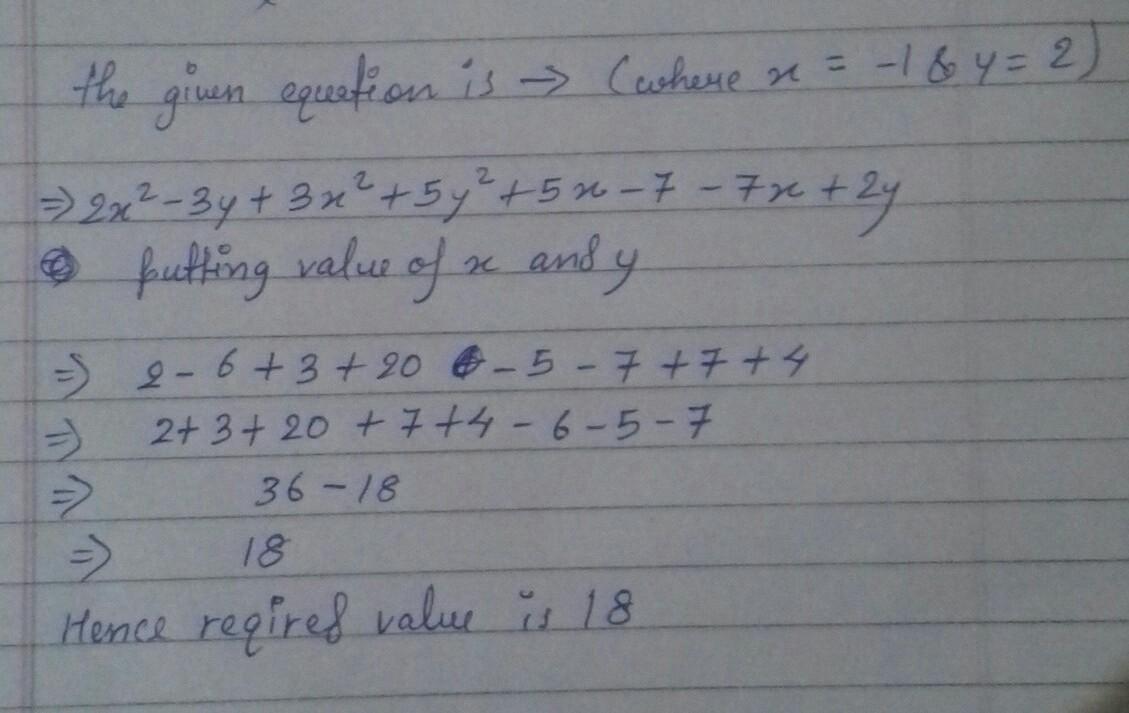 the given equation is → (where x = -1 & y = 2)
⇒ 2x² - 3y + 3x² + 5y² + 5x - 7 - 7x + 2y
putting value of x and y
⇒ 2 - 6 + 3 + 20 - 5 - 7 + 7 + 4
⇒ 2 + 3 + 20 + 7 + 4 - 6 - 5 - 7
⇒ 36 - 18
⇒ 18
Hence reqired value is 18